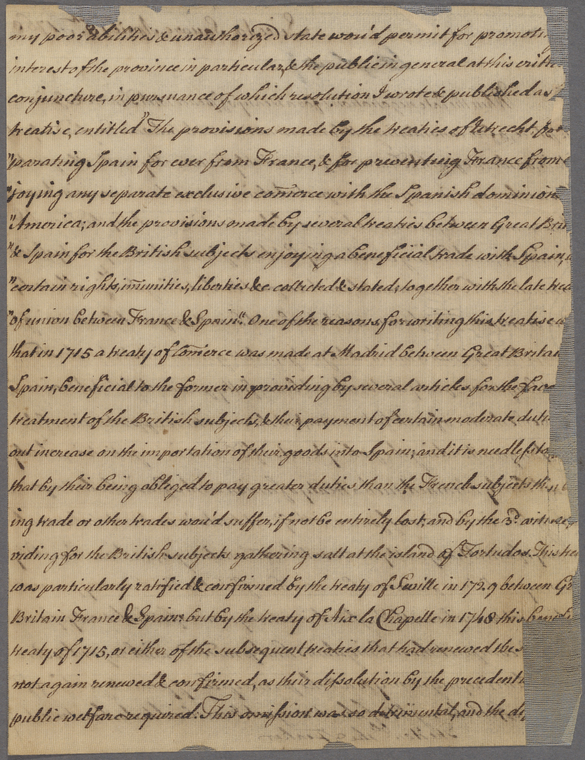 my poor abilities & unauthorized state wou'd permit for promoti
interest of the province in particular, & the public in general at this critic
conjuncture, in pursuance of which resolution I wrote & published as
treatise, entitled "The provisions made by the treaties of Utrecht, for
"parating Spain for ever from France, & for preventing France from e
"joying any separate exclusive comerce with the Spanish dominion
"America; and the provisions made by several treaties between Great Bri
"& Spain for the British subjects enjoying a beneficial trade with Spain,
"certain rights, imunities, liberties &c collected & stated; together with the late trea
"of union between France & Spain". One of the reasons for writing this treatise
that in 1715 a treaty of Comerce was made at Madrid between Great Britai
Spain, beneficial to the former in providing by several articles for the
treatment of the British subjects, & their payment of certain moderate duti
out increase on the importation of their goods into Spain; and it is needless to
that by their being obliged to pay greater duties than the French subjects
ing trade or other trades wou'd suffer, if not be entirely lost; and by the 3d article
viding for the British subjects gathering salt at the island of Tortudos. This tre
was particularly ratified & confirmed by the treaty of Seville in 1729 between Gr
Britain France & Spain: but by the treaty of Aix la Chapelle in 1748 this benefi
treaty of 1715, or either of the subsequent treaties that had renewed the s
not again renewed & confirmed, as their dissolution by the precedent
public welfare required. This omission was so detrimental, and the di